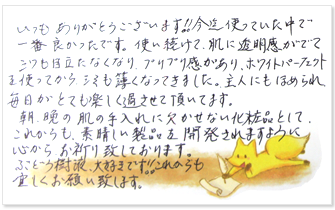 いつも ありがとうございます!!今迄使っていた中で
一番良かったです。使い続けて、肌に透明感がでて
シワも目立たなくなり、プリプリ感があり、ホワイトパーフェクト
を使ってから、シミも薄くなってきました。主人にもほめられ
毎日がとても楽しく過させて頂いてます。
朝、晩の肌の手入れに欠かせない化粧品として、
これからも、素晴しい製品を開発されますように
心からお祈り致しております。
ぶどう樹液、大好きです!!これからも
宜しくお願い致します。